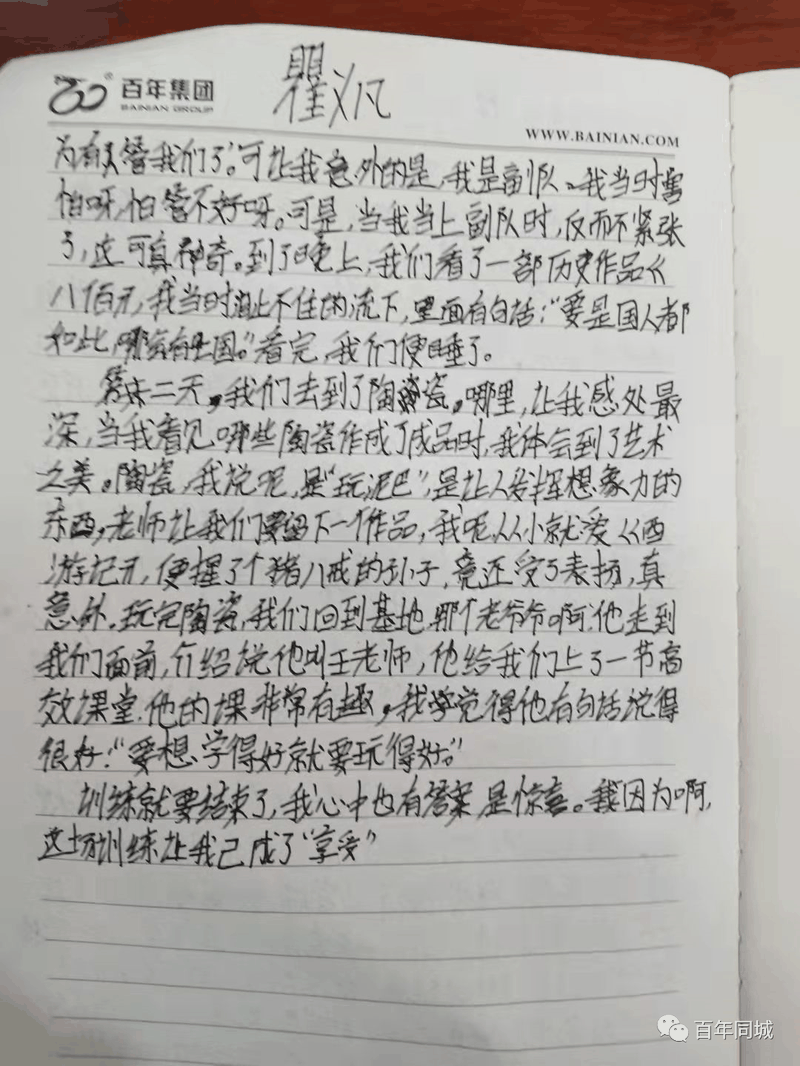 百年集团
BAINIAN GROUP
瞿义凡
WWW.BAINIAN.COM
为有人管我们了。可让我意外的是,我是副队。我当时害
怕呀,怕管不好呀。可是,当我当上副队时,反而不紧张
了,这可真神奇。到了晚上,我们看了一部历史作品《
八佰》,我当时泪止不住的流下,里面有句话:“要是国人都
如此,哪有国。”看完,我们便睡了。
第二天,我们去到了陶瓷。哪里,让我感处最
深,当我看见哪些陶瓷作成了成品时,我体会到了艺术
之美。陶瓷,我说呢,是“玩泥巴”,是让人发挥想象力的
东西,老师让我们要留下一个作品,我呢从小就爱《西
游记》,便握了个猪八戒的孙子,竟还受了表扬,真
意外。玩完陶瓷,我们回到基地,那个老爷爷啊,他走到
我们面前,介绍说他叫王老师,他给我们上了一节高
效课堂,他的课非常有趣,我学觉得他有句话说得
很好:“要想学得好就要玩得好。”
训练就要结束了,我心中也有答案,是惊喜。我因为啊,
这场训练让我已成了“享受”
百年同城